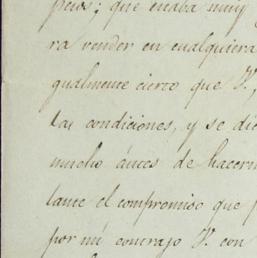 pesos; que estaba muy
ra vender en cualquiera
gualmente cierto que V.
las condiciones, y se
mucho ántes de hacerm
lante el compromiso que
por mí contrajo V. con